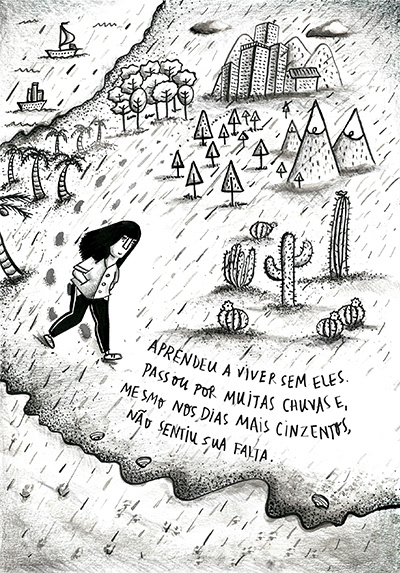 APRENDEU A VIVER SEM ELES.
PASSOU POR MUITAS CHUVAS E,
MESMO NOS DIAS MAIS CINZENTOS,
NÃO SENTIU SUA FALTA.